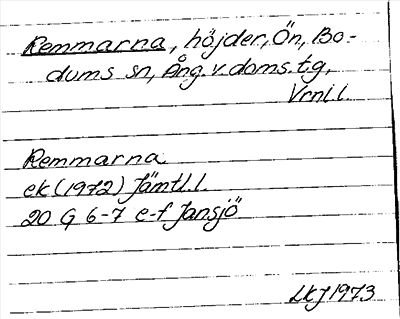 Remmarna, höjder, Ön, Bo-
dums sn, Ång. v. doms. tg,
Vrnl.l.
Remmarna
ek (1972) Jämtl.l.
20 G 6-7 e-f Jansjö
LKJ 1973